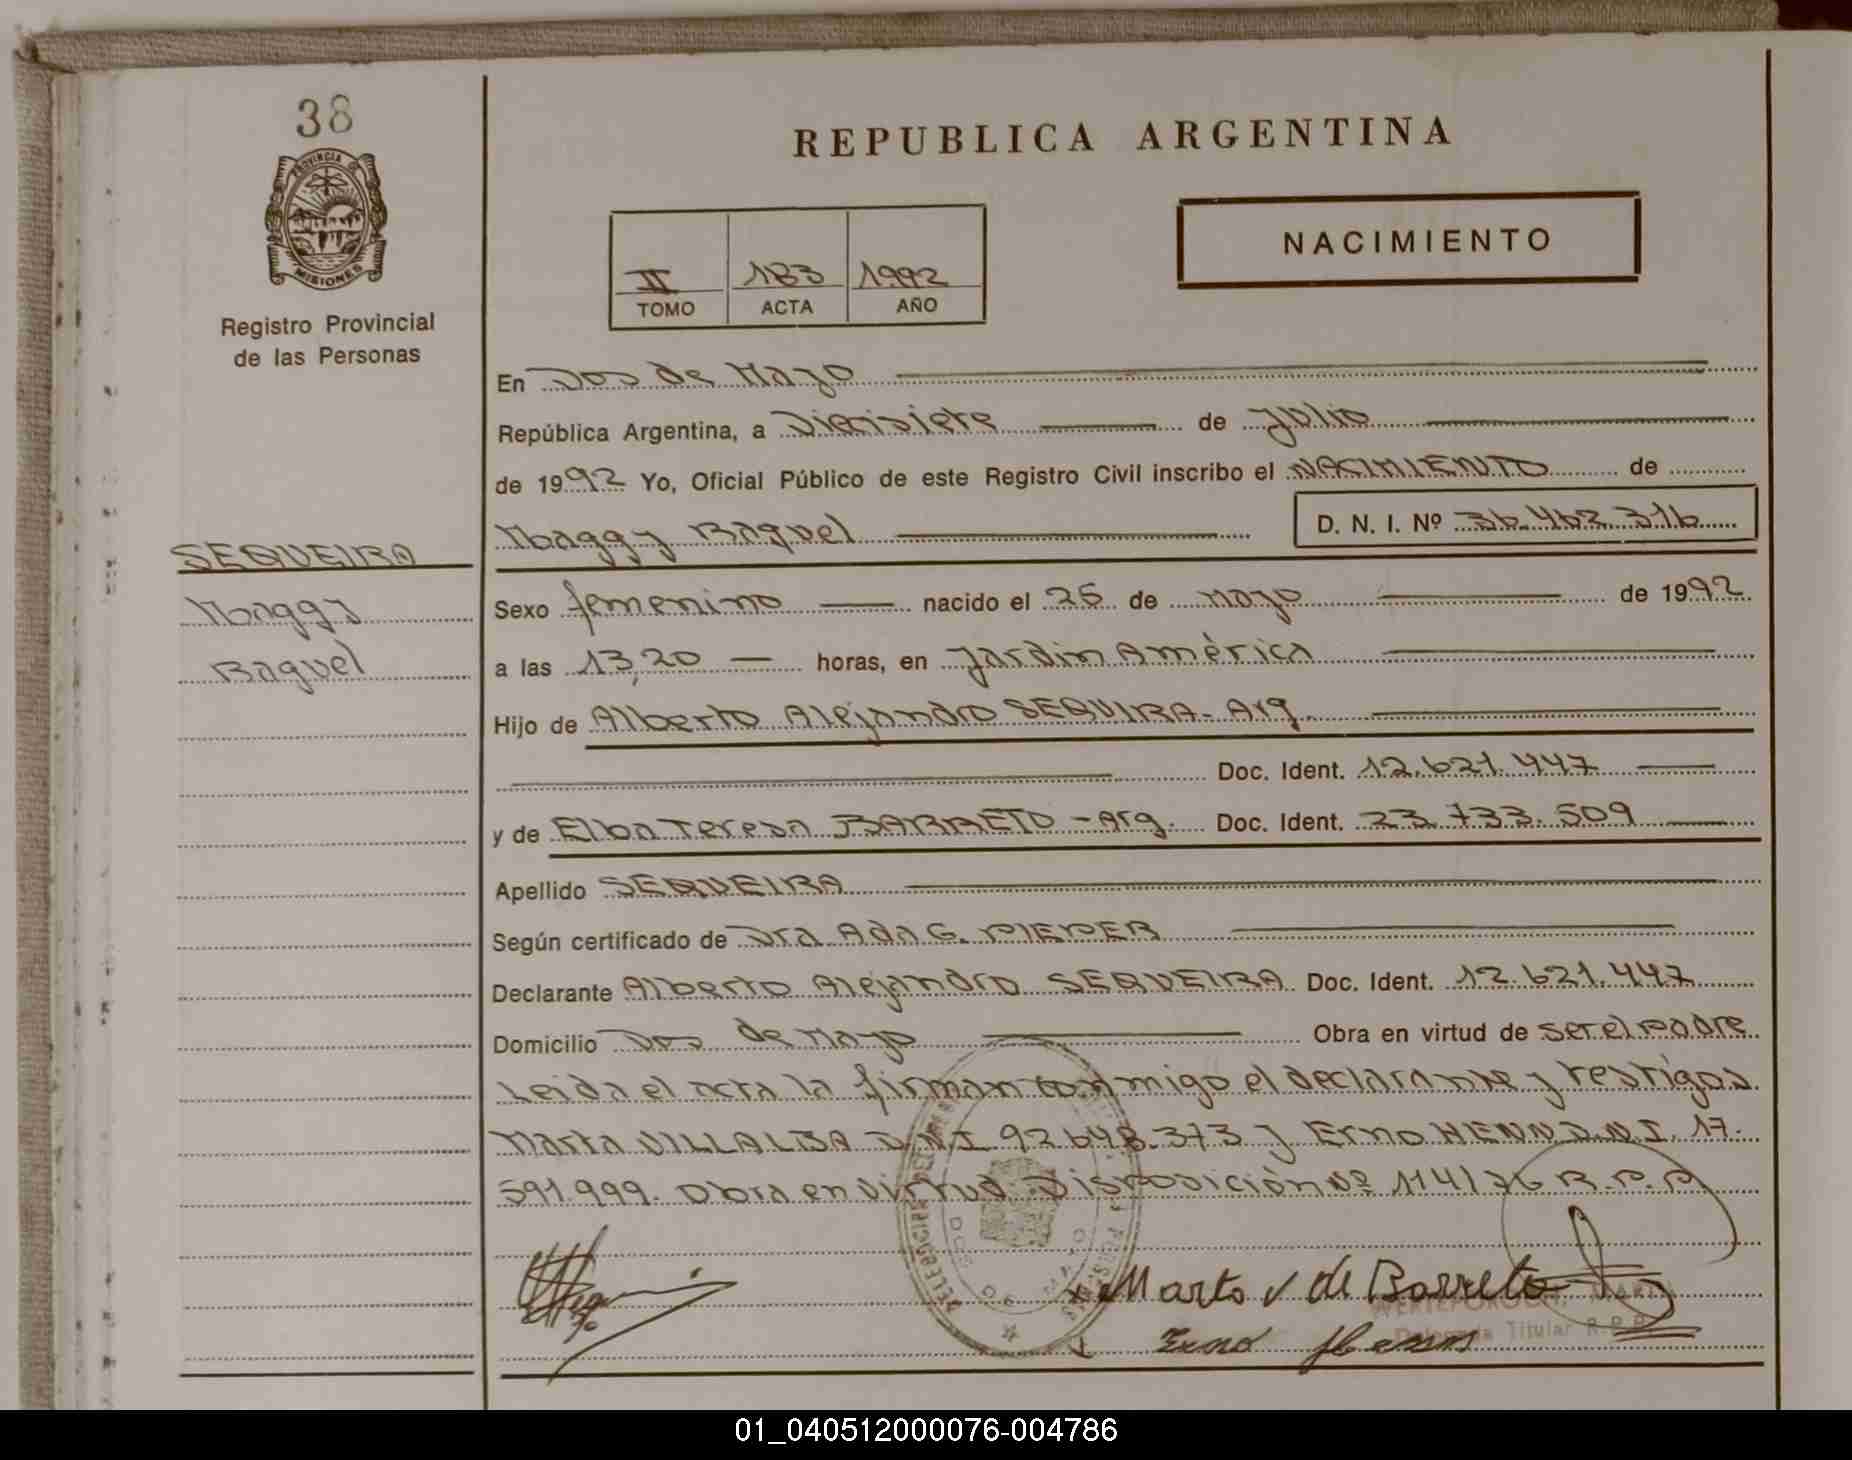 38
PROVINCIA DE
MISIONES
Registro Provincial
de las Personas
SEQUEIRA
Maggy
Raquel
REPUBLICA ARGENTINA
II 183 1992
TOMO ACTA AÑO
NACIMIENTO
En Dos de Mayo
República Argentina, a Diecisiete de Julio
de 1992 Yo, Oficial Público de este Registro Civil inscribo el NACIMIENTO de
Maggy Raquel D. N. I. Nº 36.462.316
Sexo femenino nacido el 26 de mayo de 1992
a las 13,20 horas, en Jardin América
Hijo de Alberto Alejandro SEQUIRA- Arg.
Doc. Ident. 12.621.447
y de Elba Teresa BARRETO - Arg. Doc. Ident. 23.733.509
Apellido SEQUEIRA
Según certificado de Dra Ada G. PIEPER
Declarante Alberto Alejandro SEQUEIRA Doc. Ident. 12.621.447
Domicilio Dos de Mayo Obra en virtud de ser el padre
Leida el acta la firman conmigo el declarante y testigos
Marta VILLALBA D.N.I 92.648.373 y Erno HENN D.N.I. 17.
591.999. Obra en virtud Disposición Nº 114/76 R.P.P
DOS DE MAYO
Marta v de Barreto
Titular R.P.P.
Erno Henn
01_040512000076-004786